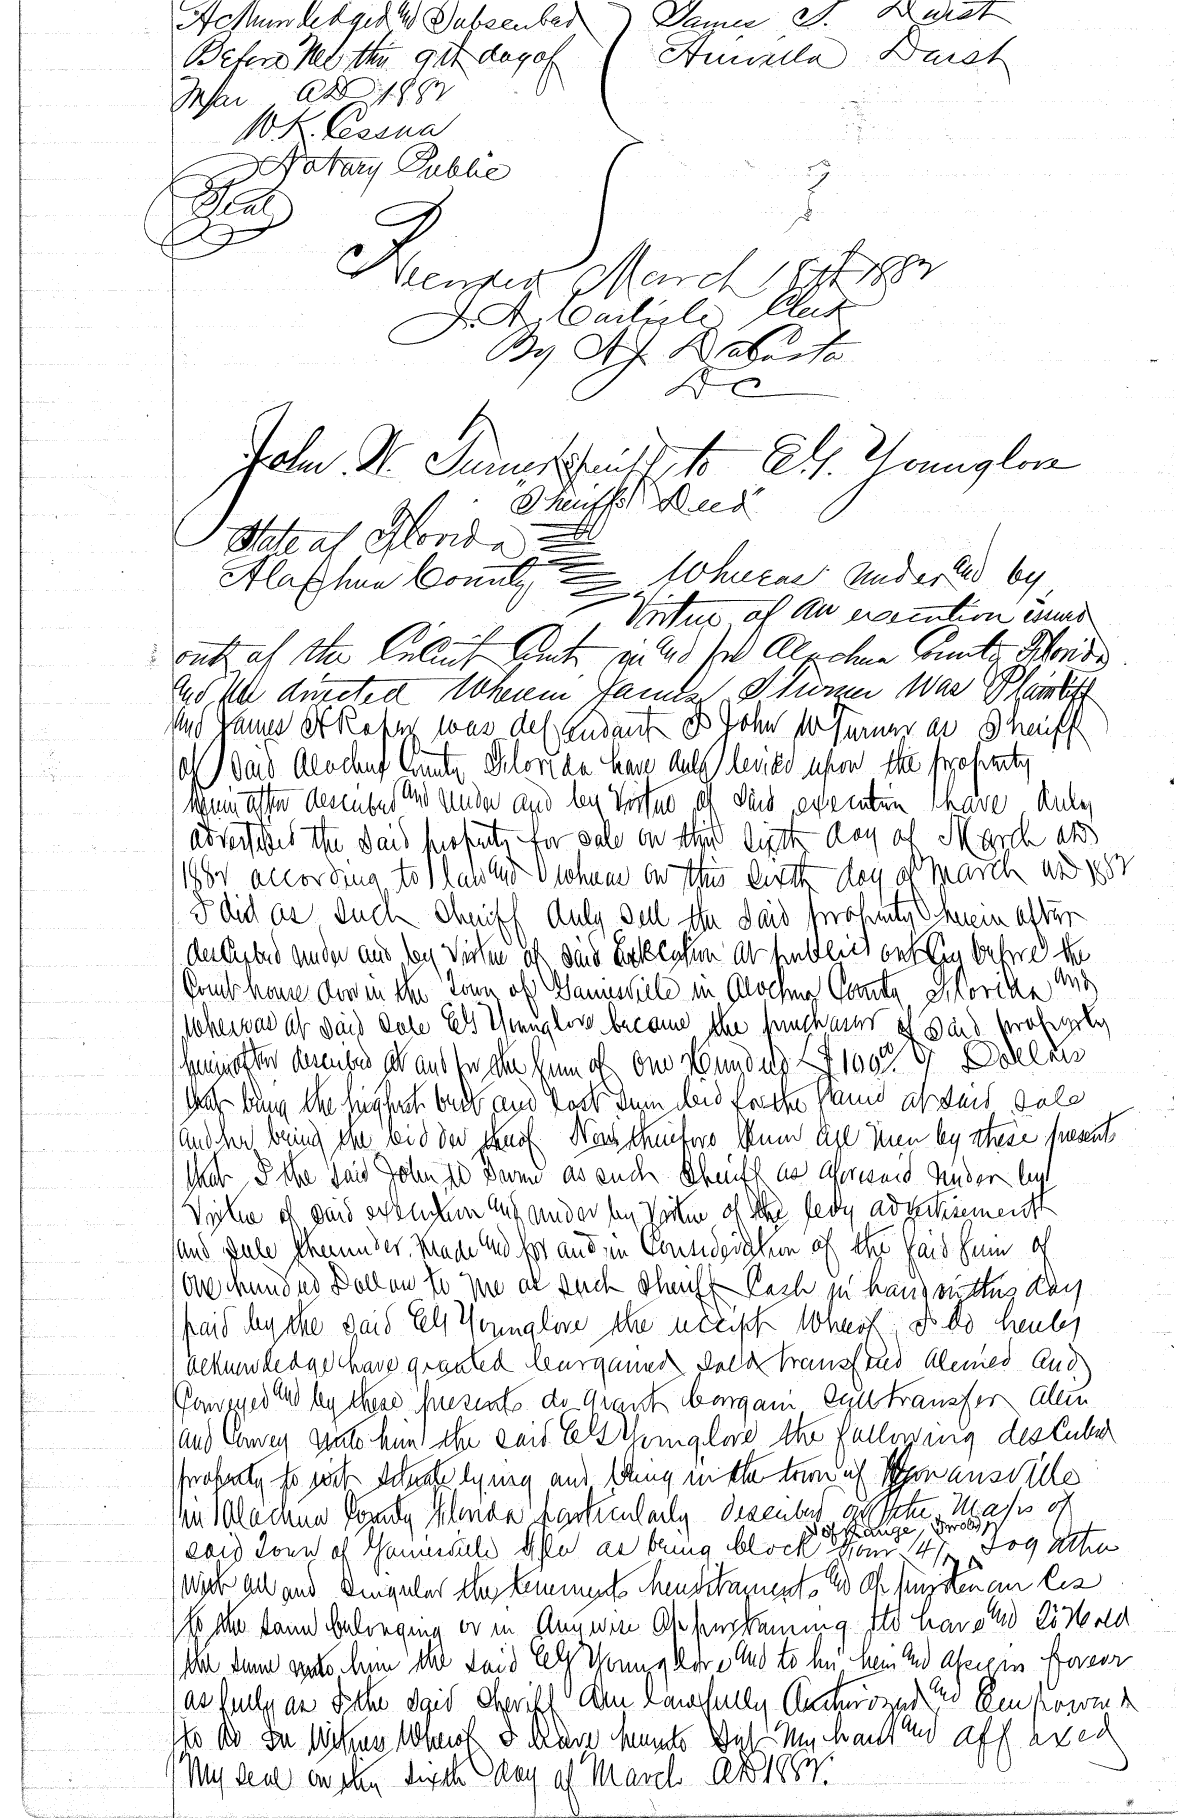 Acknowledged and Subscribed
Before Me this 9th day of
Mar AD 1882
W. K. Cessna
Notary Public
Seal
James S. Durst
Durst
Recorded March 18th 1882
J. A. Carlisle Clerk
By A. J. DaCosta
DC
John W. Turner Sheriff to EG. Younglove
"Sheriffs Deed"
State of Florida
Alachua County Whereas under and by
Virtue of an execution issued
out of the Circuit Court in and for Alachua County Florida
and Me directed Wherein James was Plaintiff
and James A Roper was defendant I John W Turner as Sheriff
of Said Alachua County Florida have duly levied upon the property
herein after described and under and by Virtue of Said execution have duly
advertised the Said property for Sale on this Sixth day of March AD
1882 according to law and whereas on this Sixth day of March AD 1882
I did as Such Sheriff duly Sell the Said property herein after
described under and by Virtue of Said Execution at public outcry before the
Court house door in the Town of Gainesville in Alachua County Florida and
whereas at Said Sale EG Younglove became the purchaser of Said property
hereinafter described at and for the Sum of One Hundred $100.00 Dollars
that being the highest best and last Sum bid for the Same at Said Sale
and he being the bidder thereof Now therefore Know All Men by these presents
that I the Said John W Turner as Such Sheriff as aforesaid Under by
Virtue of Said execution and under by Virtue of the levy advertisement
and Sale thereunder Made and for and in Consideration of the Said Sum of
One hundred Dollars to Me as Such Sheriff Cash in hand on this day
paid by the Said EG Younglove the receipt Whereof I do hereby
acknowledge have granted bargained Sold transferred aliened and
Conveyed and by these presents do grant bargain Sell transfer alien
and Convey unto him the Said EG Younglove the following described
property to wit Situate lying and being in the town of
in Alachua County Florida particularly described on the Maps of
Said Town of Gainesville Fla as being block four 14/ of Range Two(2) Together
With all and Singular the tenements hereditaments and appurtenances
to the Same belonging or in Anywise Appurtaining to have and to Hold
the Same unto him the Said EG Younglove and to his heirs and assigns forever
as fully as I the Said Sheriff am lawfully Authorized and Empowered
to do In Witness Whereof I have hereunto Set My hand and affixed
My Seal on this Sixth day of March AD 1882.